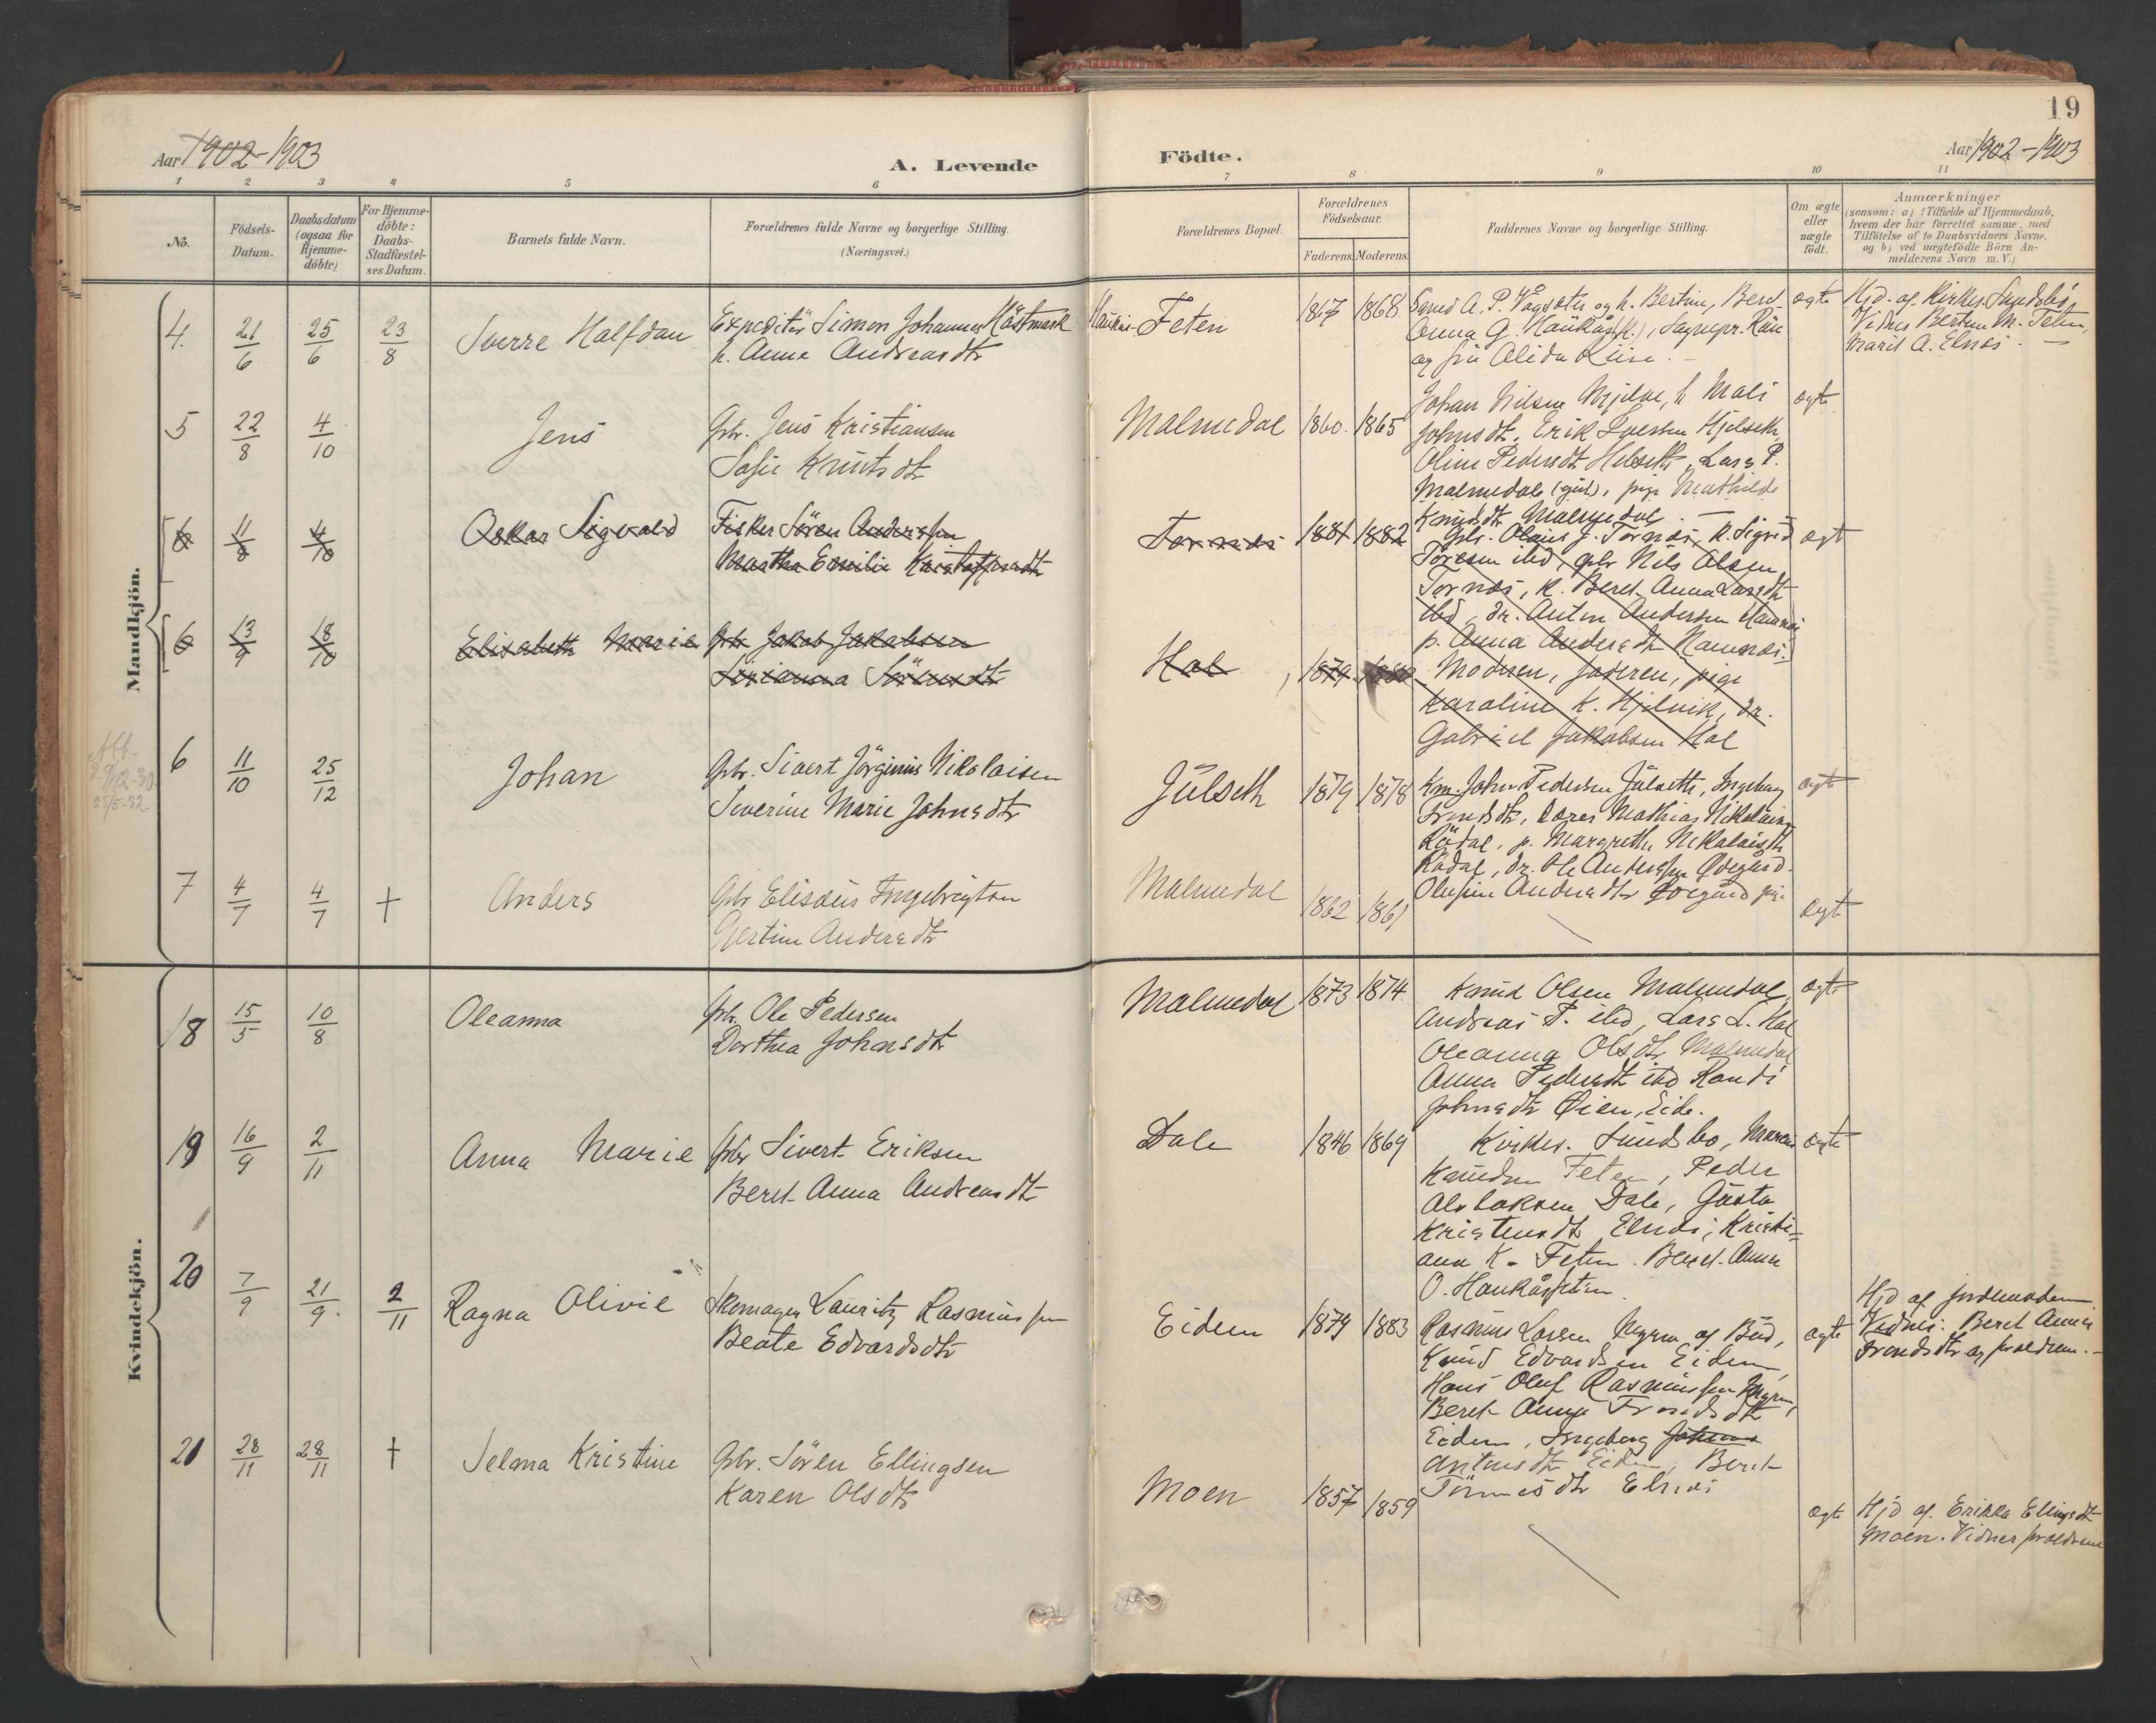 19
Aar 1902-1903
A. Levende Födte.
Aar 1902-1903
1 2 3 4 5 6 7 8 9 10 11
No.
Födsels-Datum.
Daabsdatum (ogsaa for Hjemme-döbte)
For Hjemme-döbte: Daabs-Stadfæstel-ses Datum.
Barnets fulde Navn.
Forældrenes fulde Navne og borgerlige Stilling.
(Næringsvei.)
Forældrenes Bopæl.
Forældrenes Födselsaar.
Faderens. Moderens.
Faddernes Navne og borgerlige Stilling.
Om ægte eller uægte födt.
Anmærkninger
(saasom: a) : Tilfælde af Hjemmedaab,
hvem der har forrettet samme, med
Tilföielse af to Daabsvidners Navne.
og b) ved uægtefödte Börn An-
melderens Navn m. V.)
Mandkjön.
4. 21/6 25/6 23/8 Sverre Halfdan
Expeditör Simon Johannes Höstmark
h. Anna Andreasdtr
Feten 1867 1868
og frú Alida
ægte
Hjd. af Kirkes. Sundsbö,
Vidner Bertine M. Feten,
Marit A. Elnæs. —
5 22/8 4/10 Jens
Gbr. Jens Kristiansen
Sofie Knutsdtr
Malmedal 1860. 1865
Johan Nilsen
Johnsdtr, Erik Iversen Hjelseth
Oline Pedersdtr Helseth, Lars P.
Malmedal (gut), pige Mathilde
Knudsdtr Malmedal. —
ægte
6 11/8 4/10 Oskar Sigvald
Fisker Sören Anderssen
Martha Emilie Kristoffersdtr
Tornæs 1881 1882
Gbr. Olaus J. Tornæs, k. Sigrid
Toresen ibd, gbr Nils Olsen
Tornæs, k. Beret Anna Larsdtr
ibd, dr. Anton Andersen Hamnæs
p. Anna Andersdtr Hamnæs.
ægt
6 13/9 18/10 Elisabeth Marie
Gbr Jakob Jakobsen
Sörianna Sörensdtr
Hol 1879
Modren, faderen, pige
Karoline K. Hjelvik, dr.
Gabriel Jakobsen Hol
6 11/10 25/12 Johan
Gbr. Sivert Jörginus Nikolaisen
Severine Marie Johnsdtr
Julseth 1879 1878
Km. John Pedersen Julseth, Ingeborg
Trondsdtr, Lærer Mathias Nikolaisen
Rödal, p. Margrethe Nikolaisdtr
Rödal, dr. Ole Anderssen Ødegård
Olufine Andersdtr Ødegård pige
ægte
7 4/7 4/7 † Anders
Gbr Elisæus Ingebrigtsen
Gjertine Andersdtr
Malmedal 1862 1861
ægte
Kvindekjön.
18 15/5 10/8 Oleanna
Gbr. Ole Pedersen
Dorthea Johnsdtr
Malmedal 1873 1874
Knud Olsen Malmedal,
Andreas P. ibd, Lars L. Hol
Oleanna Olsdtr Malmedal
Anna Pedersdtr ibd Randi
Johnsdtr Øien, Eide.
ægte
19 16/9 2/11 Anna Marie
Gbr Sivert Eriksen
Beret Anna Andreasdtr
Dale 1846 1869
Kirkes. Sundsbo,
Knudsen Feten, Peder
Dale, Gjertru
Kristensdtr Elnæs, Kristi-
ana K. Feten. Beret Anna
O. Haukåsfeten.
ægte
20 7/9 21/9. 2/11 Ragna Olivie
Skomager Lauritz Rasmussen
Beate Edvardsdtr
Eidem 1879 1883
Rasmus Larsen Myren af Bud,
Knud Edvardsen Eidem,
Hans Oluf Rasmussen Myren,
Beret Anna Trondsdtr
Eidem, Ingeborg
Antonsdtr Eidem, Beret
Tönnesdtr Elnæs
ægte
Hjd af jordemoderen
Vidner: Beret Anna
Trondsdtr og forældrene. —
21 28/11 28/11 † Selma Kristine
Gbr. Sören Ellingsen
Karen Olsdtr
Moen 1857 1859
ægte
Hjd af Erikka Elingsdtr
Moen. Vidner forældrene